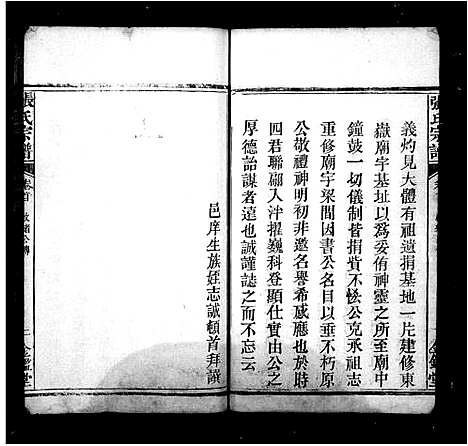 張氏宗譜
義灼見大體有祖遺捐基地一片建修東
嶽廟宇基址以爲妥侑神靈之所至廟中
鐘鼓一切儀制皆捐貲不恡公克承祖志
重修廟宇梁間因書公名目以垂不朽原
公敬禮神明初非邀名譽希感應也於時
四君聯翩入泮擢巍科登顯仕實由公之
厚德詒謀者遠也誠謹誌之而不忘云
邑庠生族姪志誠頓首拜譔
張氏宗譜
卷首